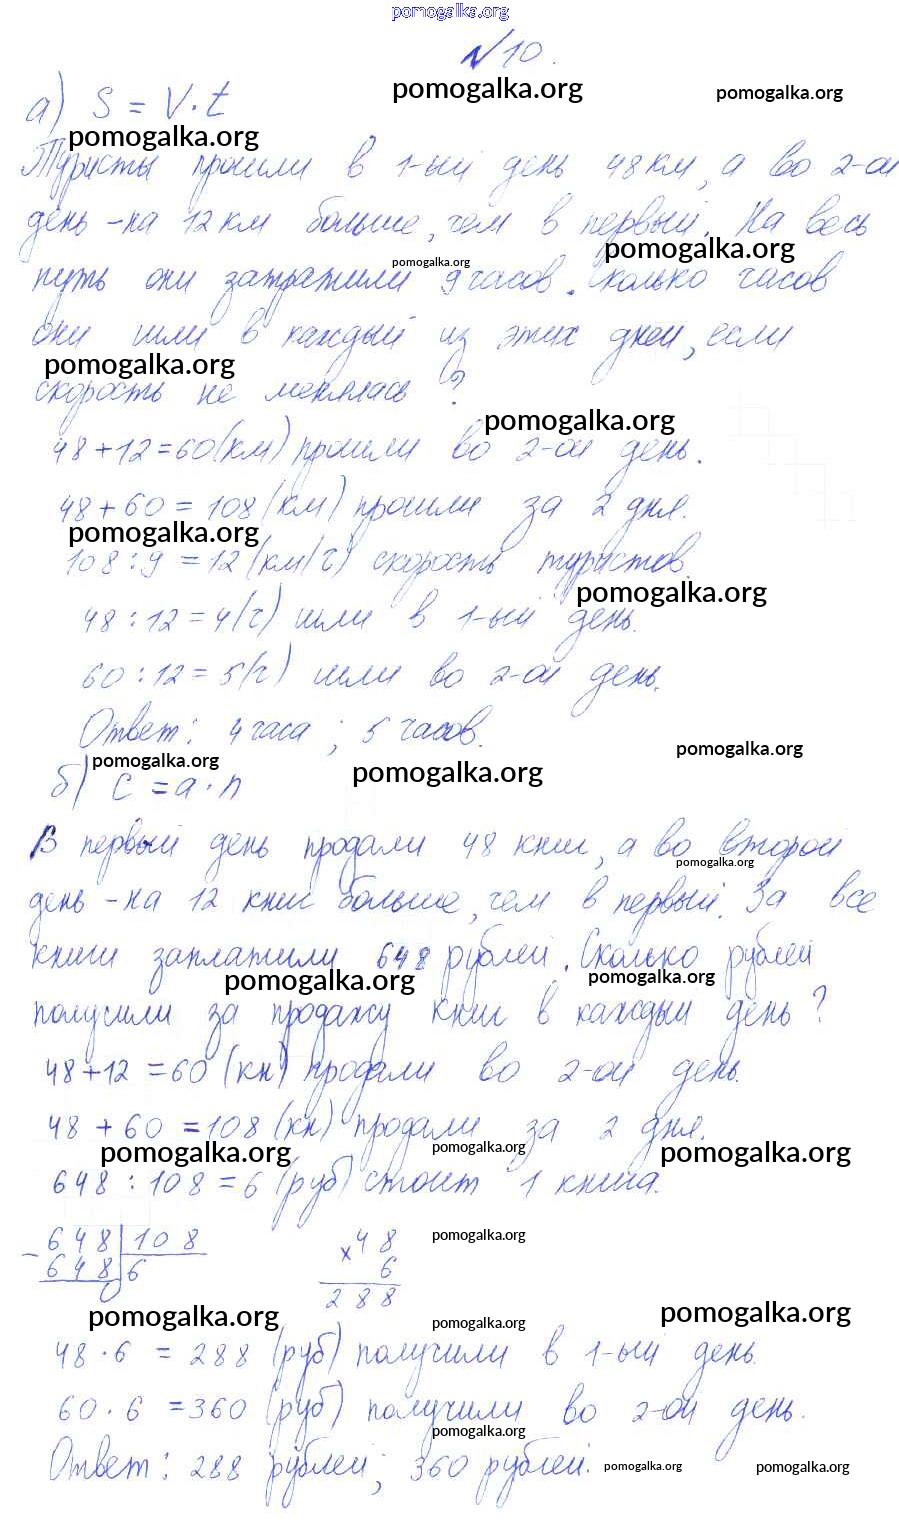 pomogalka.org
№10.
pomogalka.org pomogalka.org
а) S = V · t
pomogalka.org
Туристы прошли в 1-ый день 48 км, а во 2-ой
день - на 12 км больше, чем в первый. На весь
pomogalka.org
pomogalka.org
путь они затратили 9 часов. Сколько часов
они шли в каждый из этих дней, если
pomogalka.org
скорость не менялась?
pomogalka.org
48 + 12 = 60 (км) прошли во 2-ой день.
48 + 60 = 108 (км) прошли за 2 дня.
pomogalka.org
108 : 9 = 12 (км/ч) скорость туристов.
pomogalka.org
48 : 12 = 4 (ч) шли в 1-ый день.
60 : 12 = 5 (ч) шли во 2-ой день.
Ответ: 4 часа ; 5 часов.
pomogalka.org
pomogalka.org pomogalka.org
б) C = a · n
В первый день продали 48 книг, а во второй
pomogalka.org
день - на 12 книг больше, чем в первый. За все
книги заплатили 648 рублей. Сколько рублей
pomogalka.org pomogalka.org
получили за продажу книг в каждый день?
48 + 12 = 60 (кн) продали во 2-ой день.
48 + 60 = 108 (кн) продали за 2 дня.
pomogalka.org pomogalka.org pomogalka.org
648 : 108 = 6 (руб) стоит 1 книга.
- 648 108 × 48 pomogalka.org
648 6 6
0 288
pomogalka.org pomogalka.org pomogalka.org
48 · 6 = 288 (руб) получили в 1-ый день.
60 · 6 = 360 (руб) получили во 2-ой день.
pomogalka.org
Ответ: 288 рублей; 360 рублей.
pomogalka.org pomogalka.org